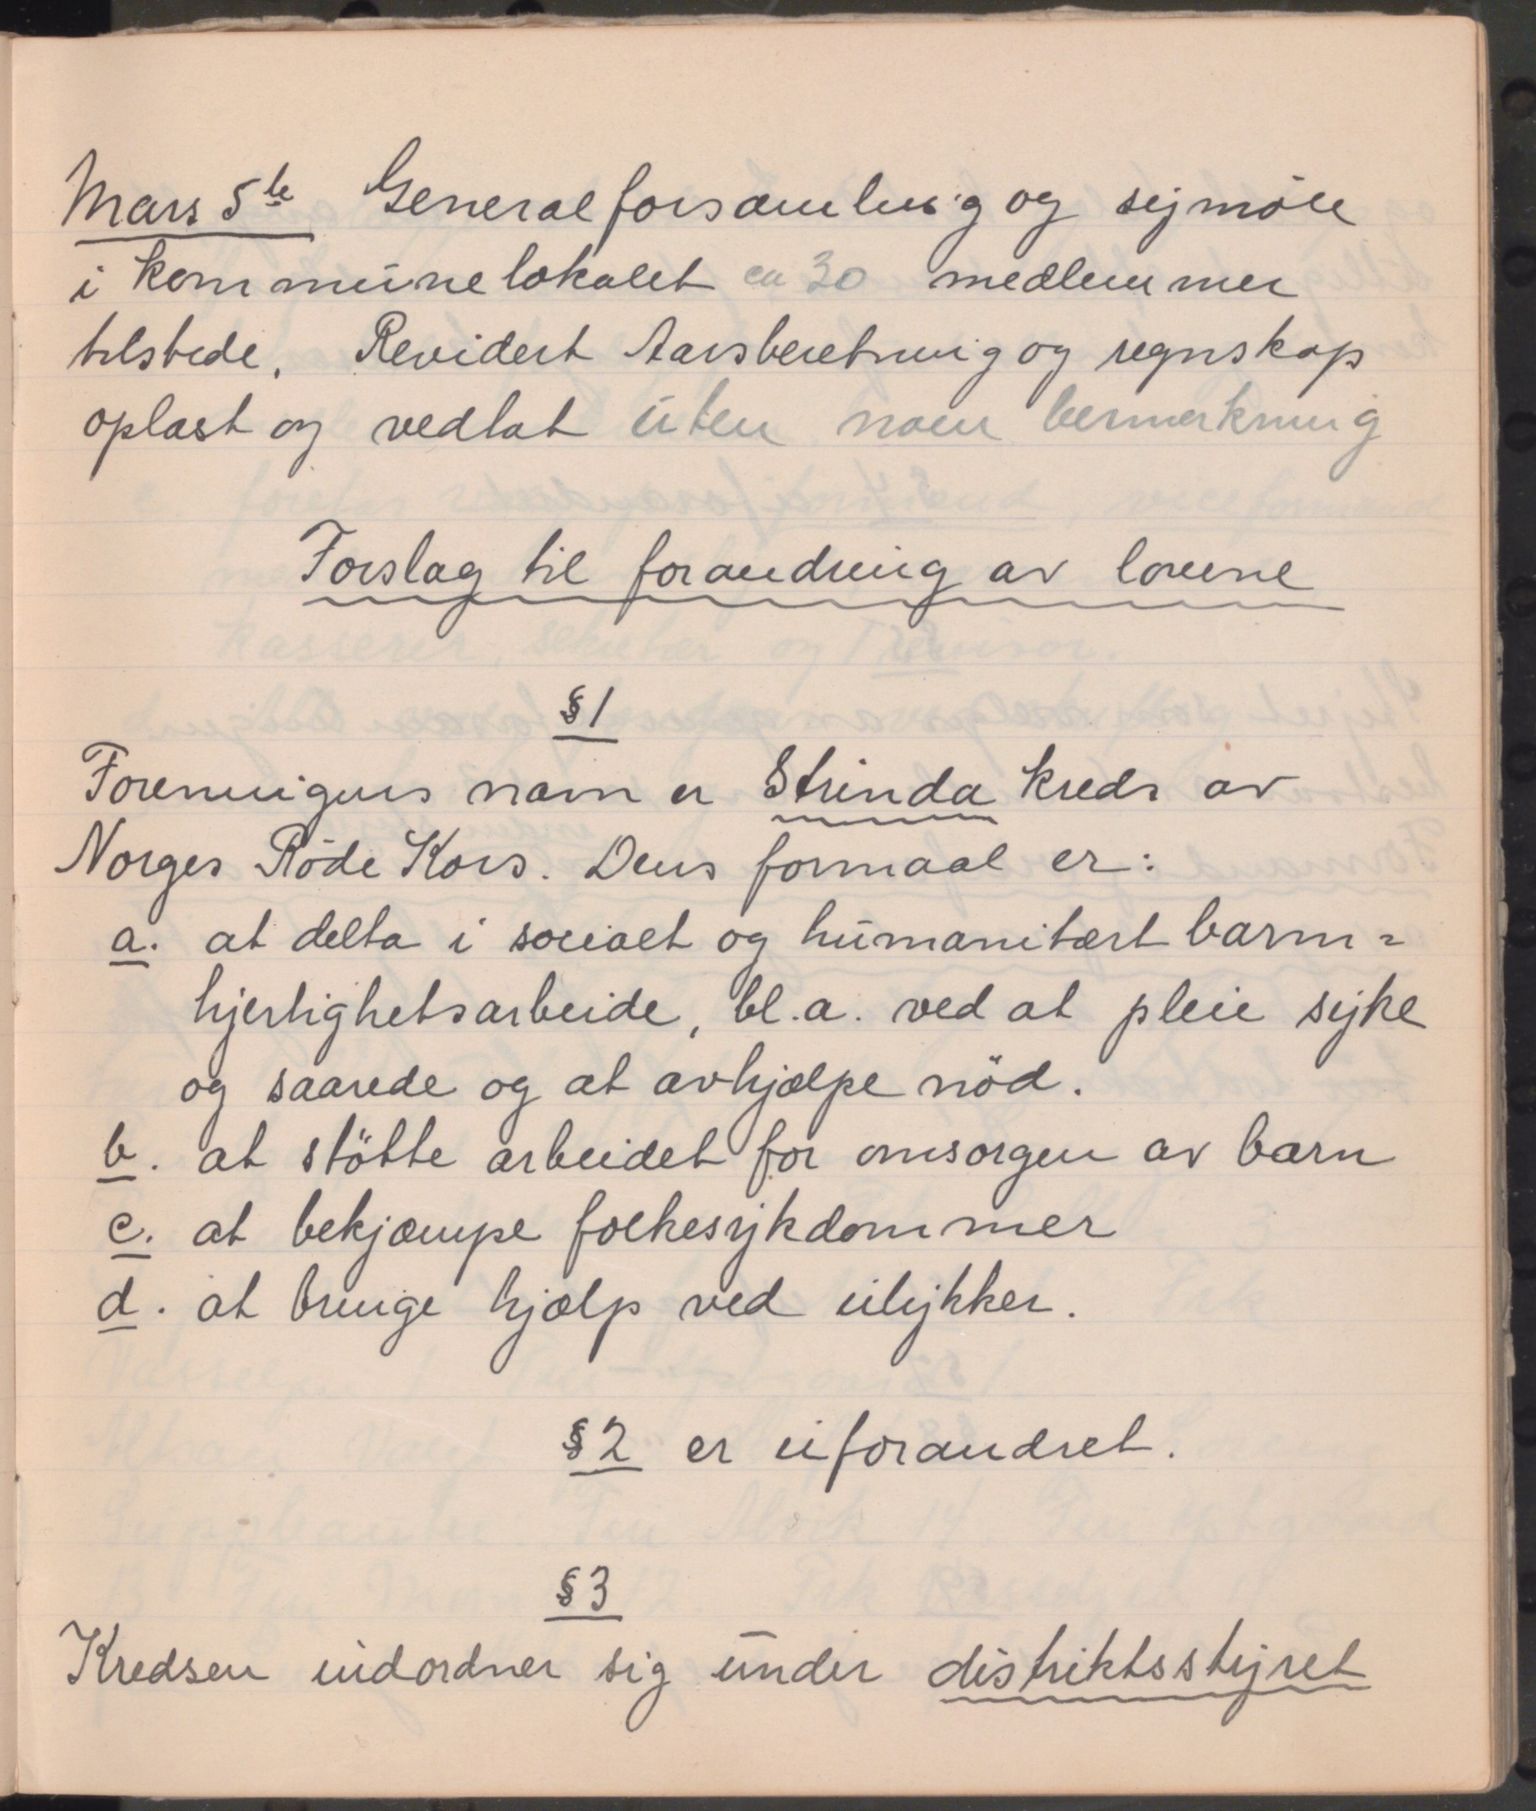 Mars 5te Generalforsamling og symöte
i kommunelokalet ca 30 medlemmer
tilstede. Revidert Aarsberetning og regnskap
oplæst og vedtat uten noen bemerkning
Forslag til forandring av lovene
§1
Foreningens navn er Strinda kreds av
Norges Röde Kors. Dens formaal er:
a. at delta i socialt og humanitært barm=
hjertighetsarbeide, bl.a. ved at pleie syke
og saarede og at avhjælpe nöd.
b. at stötte arbeidet for omsorgen av barn
c. at bekjæmpe folkesykdommer
d. at bringe hjælp ved ulykker.
§2 er uforandret.
§3
Kredsen indordner sig under distriktsstyret